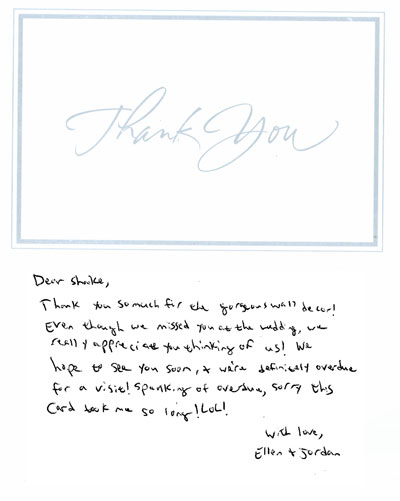 Thank You
Dear shake,
Thank you so much for the gorgeous wall decor!
Even though we missed you at the wedding, we
really appreciate you thinking of us! We
hope to see you soon, + we're definitely overdue
for a visit! Spanking of overdue, sorry this
Card took me so long! LOL!
With love,
Ellen + Jordan